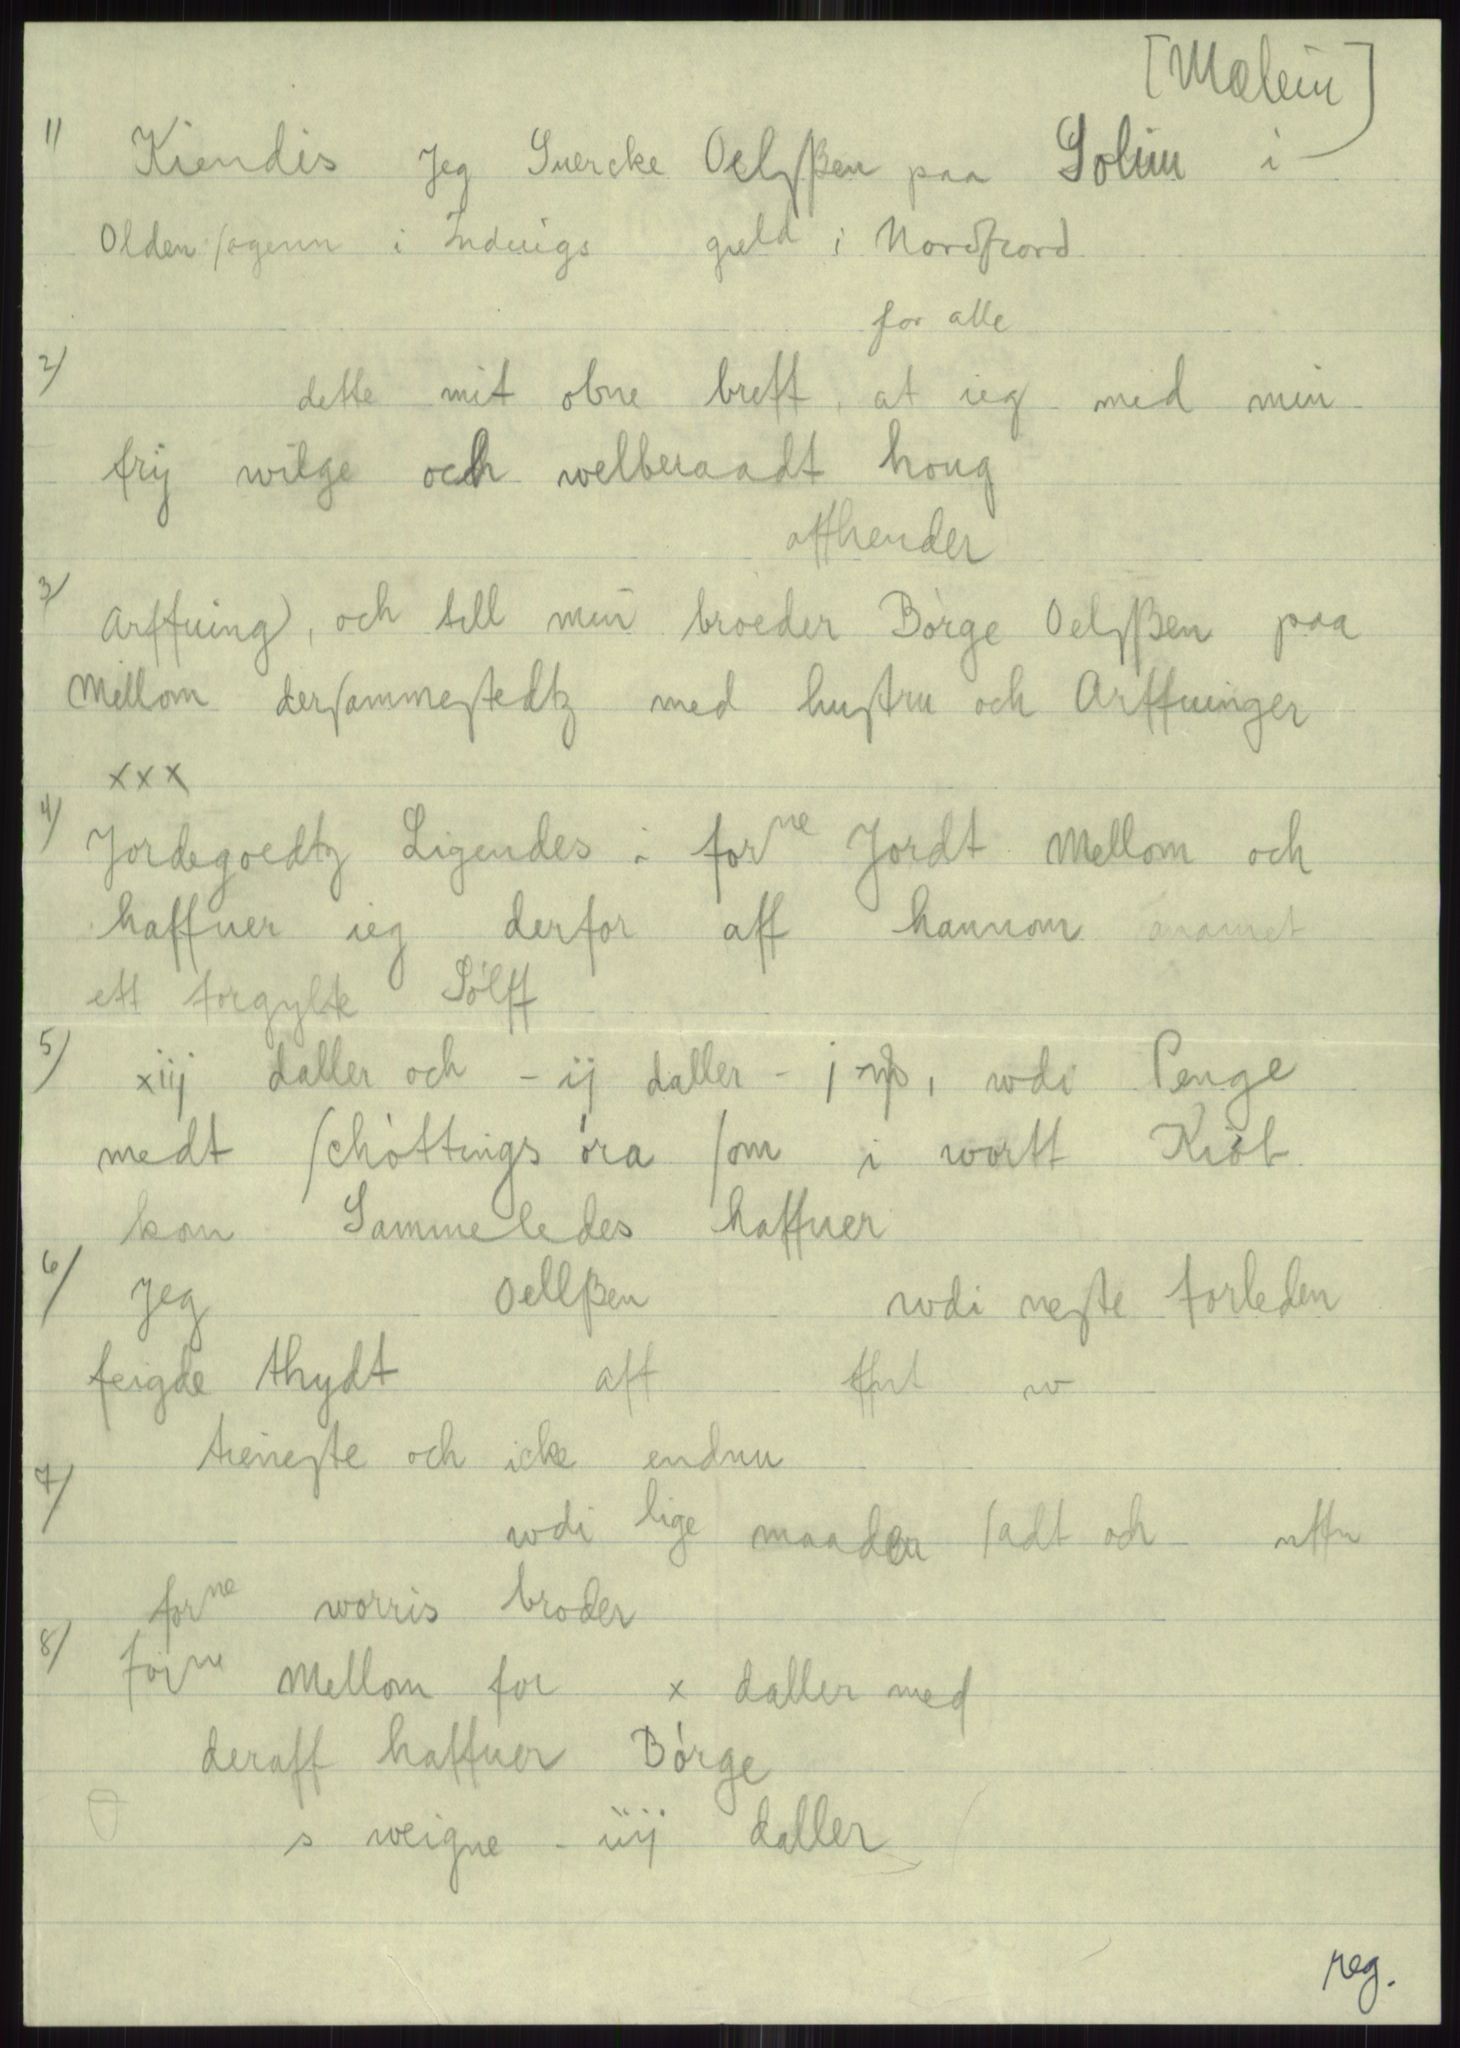 [Mælem]
1) Kiendis Jeg Suercke Oelsßen paa Solim i
Olden sogenn i Induigs gield i Nordfiord
for alle
2)
dette mit obne breff, at ieg med min
frij wilge och welberaadt houg
affhender
3) Arffuing), och till min broeder Börge Oelsßen paa
Mellom dersammestedtz med hustru och Arffuinger
xxx
4) Jordegoedtz Ligendes i for^ne Jordt Mellom och
haffuer ieg derfor aff hannom anamet
ett forgylte Sölff
5) xiij daller och - ij daller - j, wdi Penge
medt schöttings öra som i wortt Kiöb
kom Sammeledes haffuer
6) Jeg Oellßen wdi neste forleden
feigde thydt aff w
tieneste och icke endnu
7)
wdi lige maader sadt och
for^ne worris broder
8) for^ne Mellom for x daller med
deraff haffuer Börge
s weigne - iiij daller
reg.